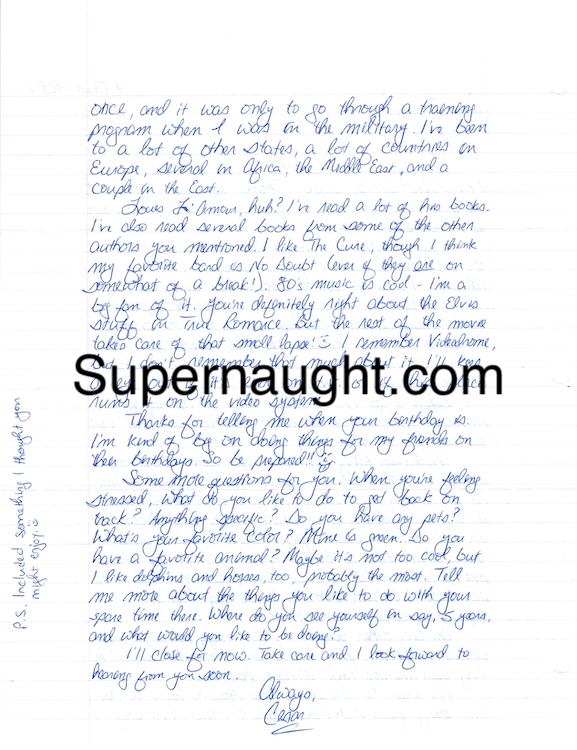 once, and it was only to go through a training
program when I was in the military. I've been
to a lot of other states, a lot of countries in
Europe, several in Africa, the Middle East, and a
couple in the East.
Louis L'Amour, huh? I've read a lot of his books.
I've also read several books from some of the other
authors you mentioned. I like The Cure, though I think
my favorite band is No Doubt (even if they are on
somewhat of a break!). 80's music is cool - I'm a
big fan of it. You're definitely right about the Elvis
stuff in True Romance. But the rest of the movie
takes care of that small lapse! I remember Videodrome,
but I don't remember that much about it. I'll keep
Supernaught.com
runs it on the video system.
Thanks for telling me when your birthday is.
I'm kind of big on doing things for my friends on
their birthdays. So be prepared!!
Some more questions for you. When you're feeling
stressed, what do you like to do to get back on
track? Anything specific? Do you have any pets?
What's your favorite color? Mine is green. Do you
have a favorite animal? Maybe it's not too cool, but
I like dolphins and horses, too, probably the most. Tell
me more about the things you like to do with your
spare time there. Where do you see yourself in say, 5 years,
and what would you like to be doing?
I'll close for now. Take care and I look forward to
hearing from you soon.
Always,
Cesar
P.S. Included something I thought you
might enjoy.